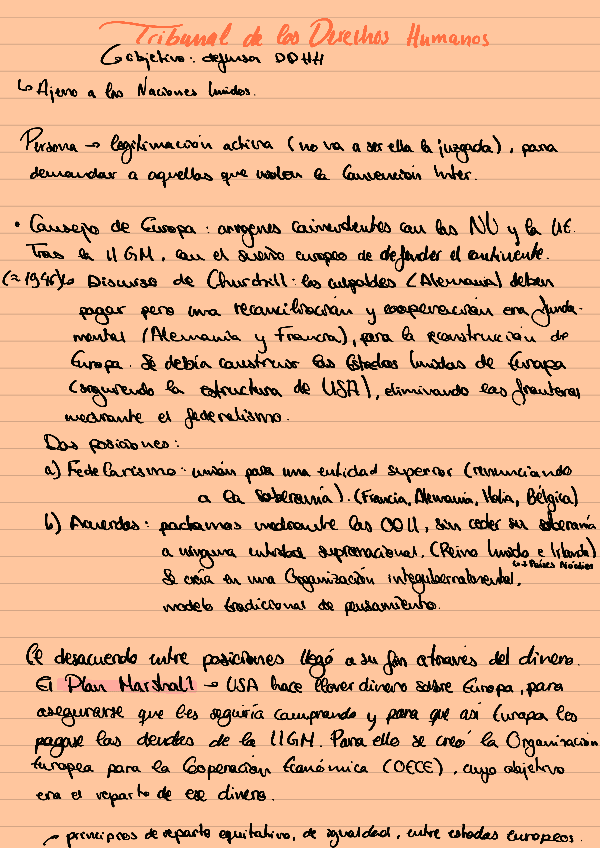 Tribunal de los Derechos Humanos
↳ objetivo: defensa DDHH
↳ Ajeno a las Naciones Unidas.
Persona → legitimación activa (no va a ser ella la juzgada), para
demandar a aquellas que violen la Convención Inter.
• Consejo de Europa: orígenes coincidentes con las NU y la UE.
Tras la IIGM, con el sueño europeo de defender el continente.
(≈1946) ↳ Discurso de Churchill: los culpables (Alemania) deben
pagar pero una reconciliación y cooperación era funda-
mental (Alemania y Francia), para la reconstrucción de
Europa. Se debía construir los Estados Unidos de Europa
(siguiendo la estructura de USA), eliminando las fronteras
mediante el federalismo.
Dos posiciones:
a) Federalismo: unión para una entidad superior (renunciando
a la soberanía). (Francia, Alemania, Italia, Bélgica)
b) Acuerdos: pactamos mediante las OOII, sin ceder su soberanía
a ninguna entidad supranacional. (Reino Unido e Irlanda)
↳ + Países Nórdicos
Se creía en una Organización intergubernamental,
modelo tradicional de pensamiento.
El desacuerdo entre posiciones llegó a su fin a través del dinero.
El Plan Marshall → USA hace llover dinero sobre Europa, para
asegurarse que les seguiría comprando y para que así Europa les
pagase las deudas de la IIGM. Para ello se creó la Organización
Europea para la Cooperación Económica (OECE), cuyo objetivo
era el reparto de ese dinero.
principios de reparto equitativo, de igualdad, entre estados europeos.